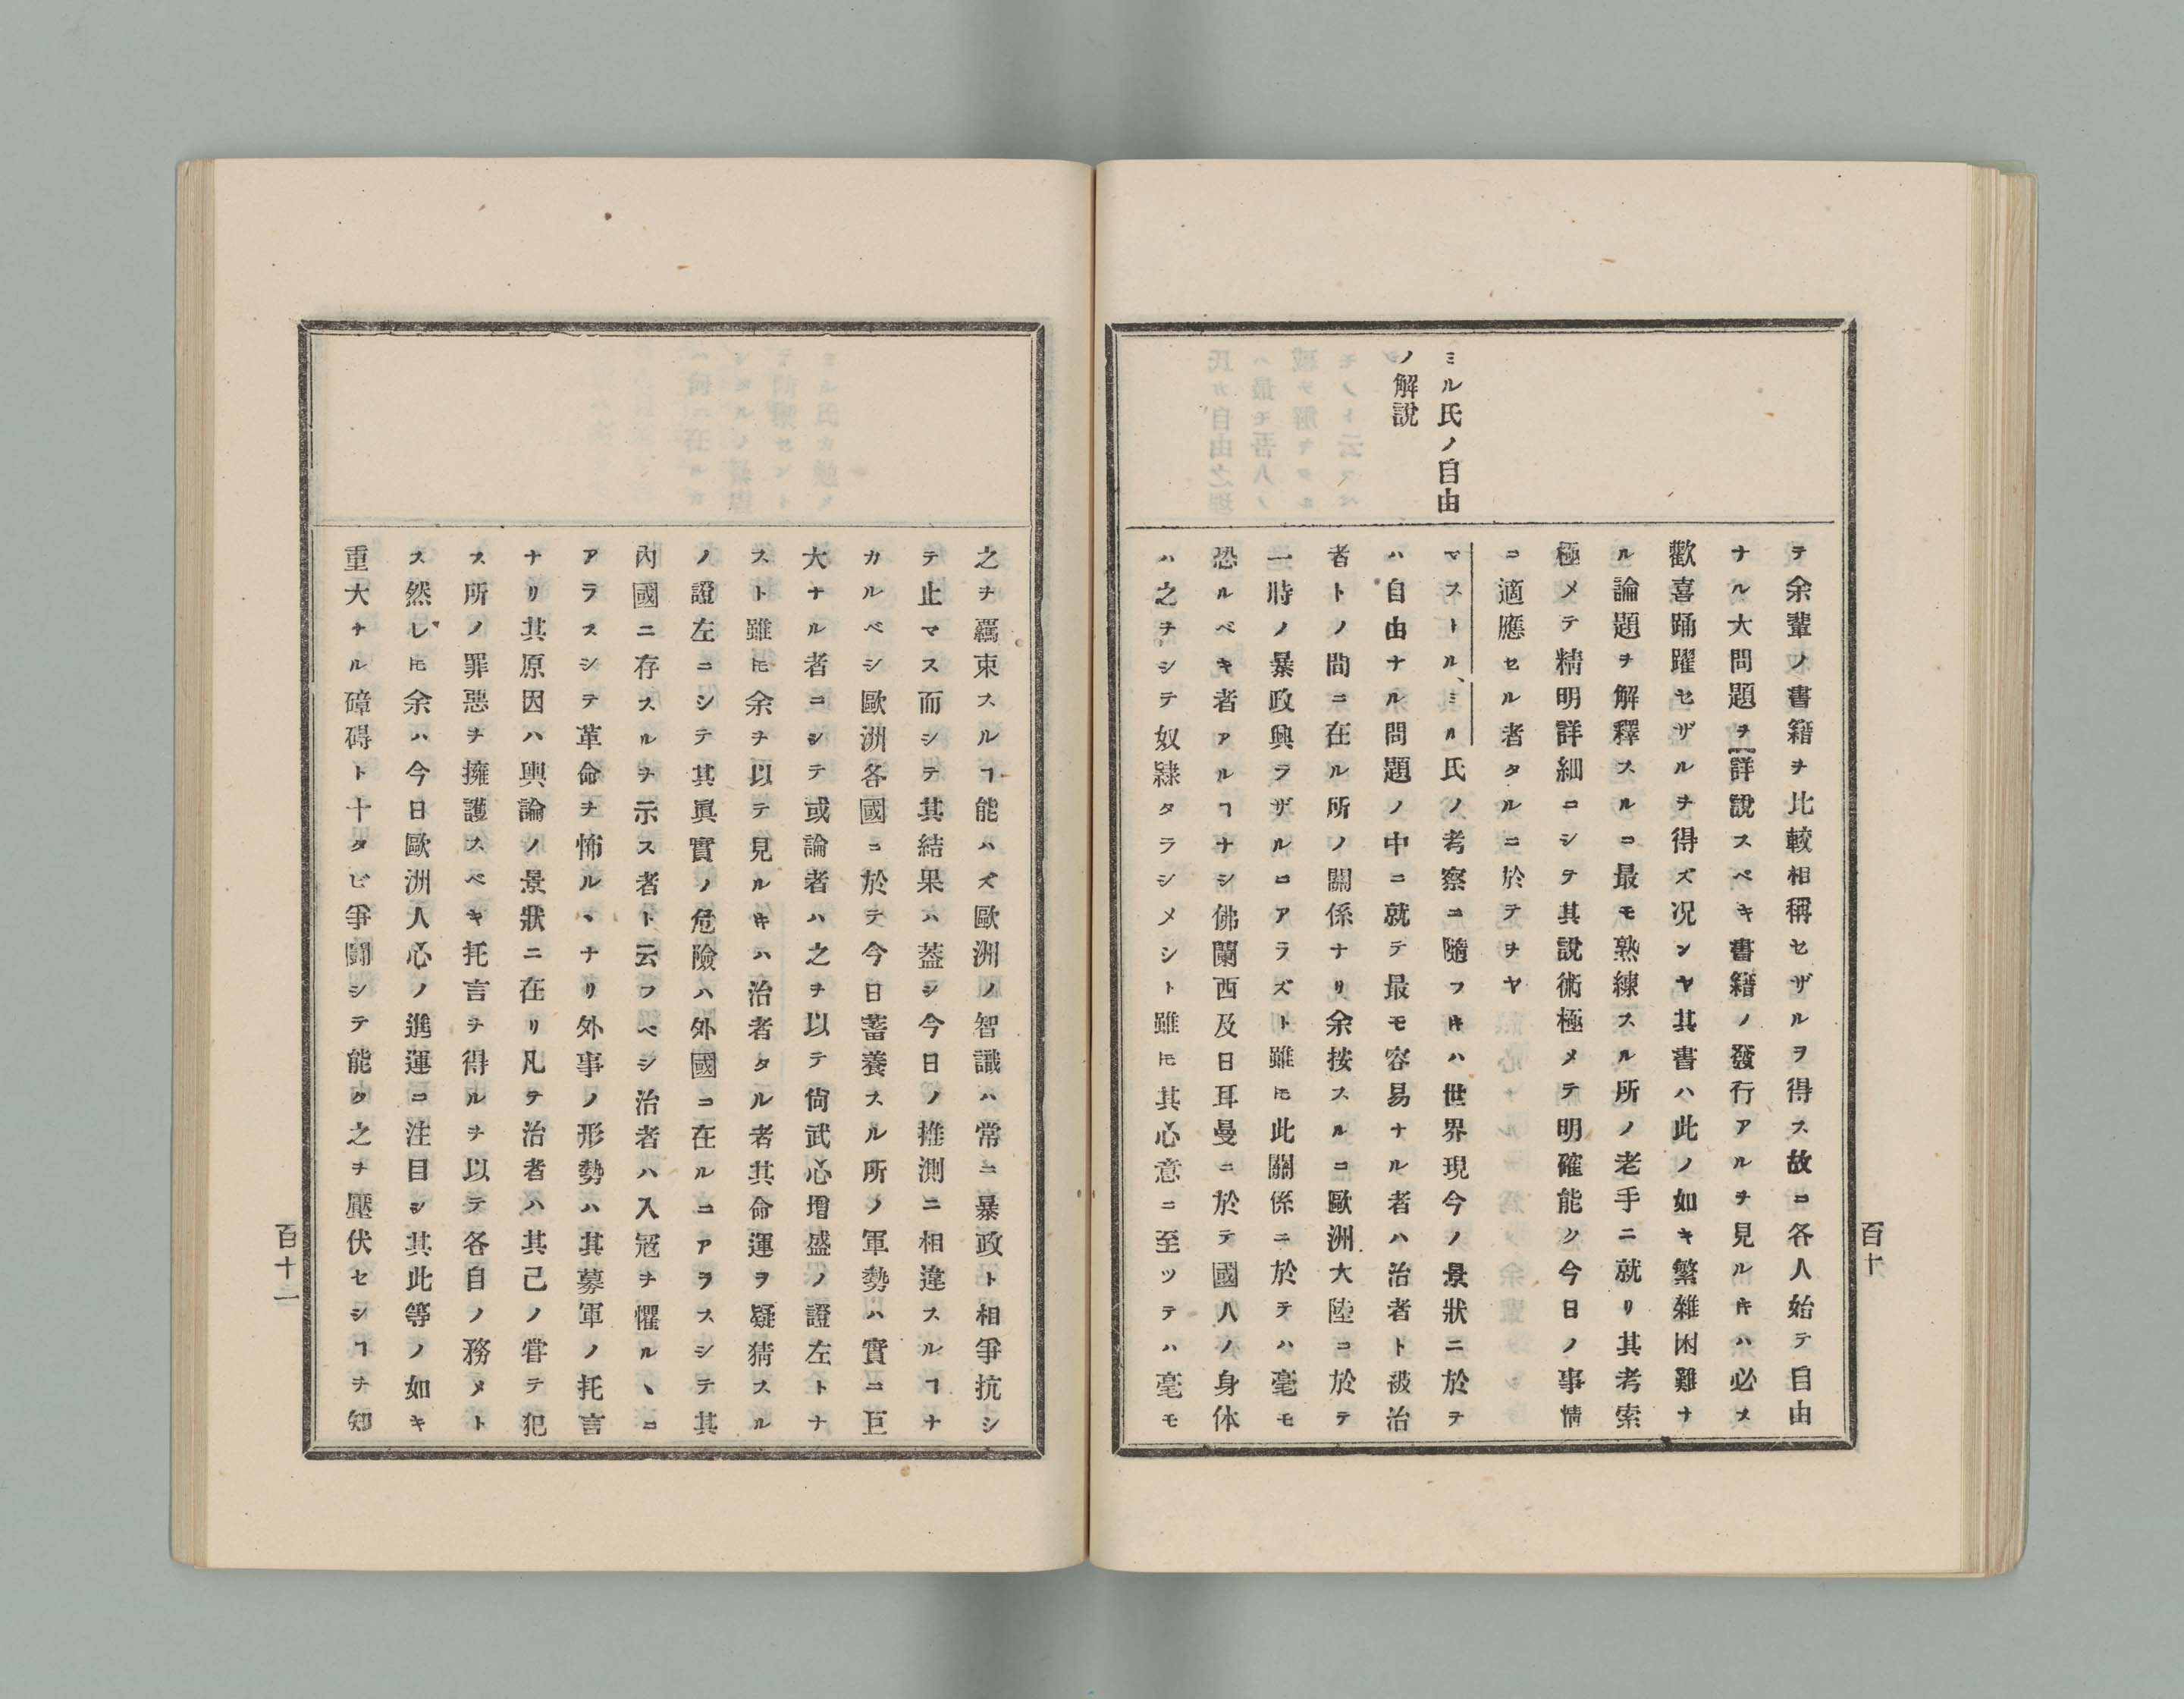 ミル氏ノ自由
ノ解說
テ余輩ノ書籍ヲ比較相稱セザルヲ得ス故ニ各人始テ自由
ナル大問題ヲ詳說スベキ書籍ノ發行アルヲ見ルキハ必ス
歡喜踊躍セザルヲ得ズ况ンヤ其書ハ此ノ如キ繁雜困難ナ
ル論題ヲ解釋スルニ最モ熟練スル所ノ老手ニ就リ其考索
極メテ精明詳細ニシテ其說術極メテ明確能ク今日ノ事情
ニ適應セル者タルニ於テヲヤ
マストル、ミル氏ノ考察ニ隨フキハ世界現今ノ景狀ニ於テ
ハ自由ナル問題ノ中ニ就テ最モ容易ナル者ハ治者ト被治
者トノ間ニ在ル所ノ關係ナリ余按スルニ歐洲大陸ニ於テ
一時ノ暴政興ラザルニアラズト雖𪜈此關係ニ於テハ毫モ
恐ルベキ者アルヿナシ佛蘭西及日耳曼ニ於テ國人ノ身体
ハ之ヲシテ奴隸タラシメシト雖𪜈其心意ニ至ツテハ毫モ
百十
之ヲ羈束スルヿ能ハズ歐洲ノ智識ハ常ニ暴政ト相爭抗シ
テ止マス而シテ其結果ハ蓋シ今日ノ推測ニ相違スルヿナ
カルベシ歐洲各國ニ於テ今日蓄養スル所ノ軍勢ハ實ニ巨
大ナル者ニシテ或論者ハ之ヲ以テ尙武心增盛ノ證左トナ
スト雖𪜈余ヲ以テ見ルキハ治者タル者其命運ヲ疑猜スル
ノ證左ニシテ其眞實ノ危險ハ外國ニ在ルニアラスシテ其
內國ニ存スルヲ示ス者ト云フベシ治者ハ入冦ヲ懼ルヽニ
アラスシテ革命ヲ怖ルヽナリ外事ノ形勢ハ其募軍ノ托言
ナリ其原因ハ輿論ノ景狀ニ在リ凡テ治者ハ其己ノ甞テ犯
ス所ノ罪惡ヲ擁護スベキ托言ヲ得ルヲ以テ各自ノ務メト
ス然レ𪜈余ハ今日歐洲人心ノ進運ニ注目シ其此等ノ如キ
重大ナル障碍ト十タビ爭鬪シテ能ク之ヲ壓伏セシヿヲ知
百十一